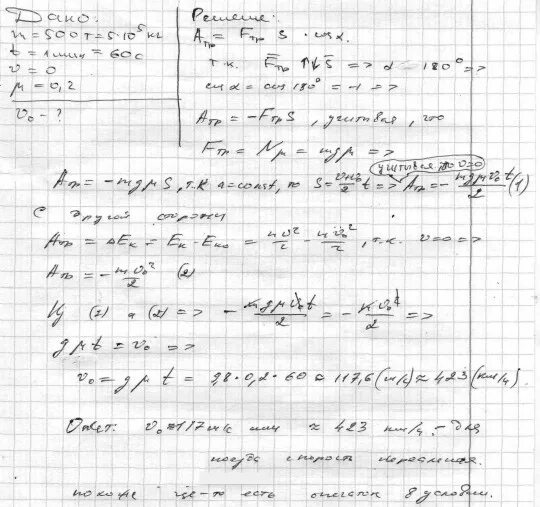 Дано:
m = 500т = 5·10⁵ кг
t = 1 мин = 60с
v = 0
μ = 0,2
v₀ - ?
Решение:
Aтр = Fтр S · cosα.
т.к. F̅тр ↑↓ S̅ => α = 180° =>
cosα = cos 180° = -1 =>
Aтр = -Fтр S, учитывая, что
Fтр = Nμ = mgμ =>
учитывая, что v=0
Aтр = -mgμS, т.к. a=const, то S = (v+v₀)/2 t => Aтр = - mgμv₀t/2 (1)
С другой стороны
Aтр = ΔEк = Eк - Eк₀ = mv²/2 - mv₀²/2, т.к. v=0 =>
Aтр = - mv₀²/2 (2)
Из (1) и (2) => - mgμv₀t/2 = - mv₀²/2 =>
gμt = v₀ =>
v₀ = gμt = 9,8·0,2·60 = 117,6 (м/с) ≈ 423 (км/ч).
Ответ: v₀ ≈ 117 м/с или ≈ 423 км/ч - для
поезда скорость нереальная.
похоже где-то есть опечатка в условии.